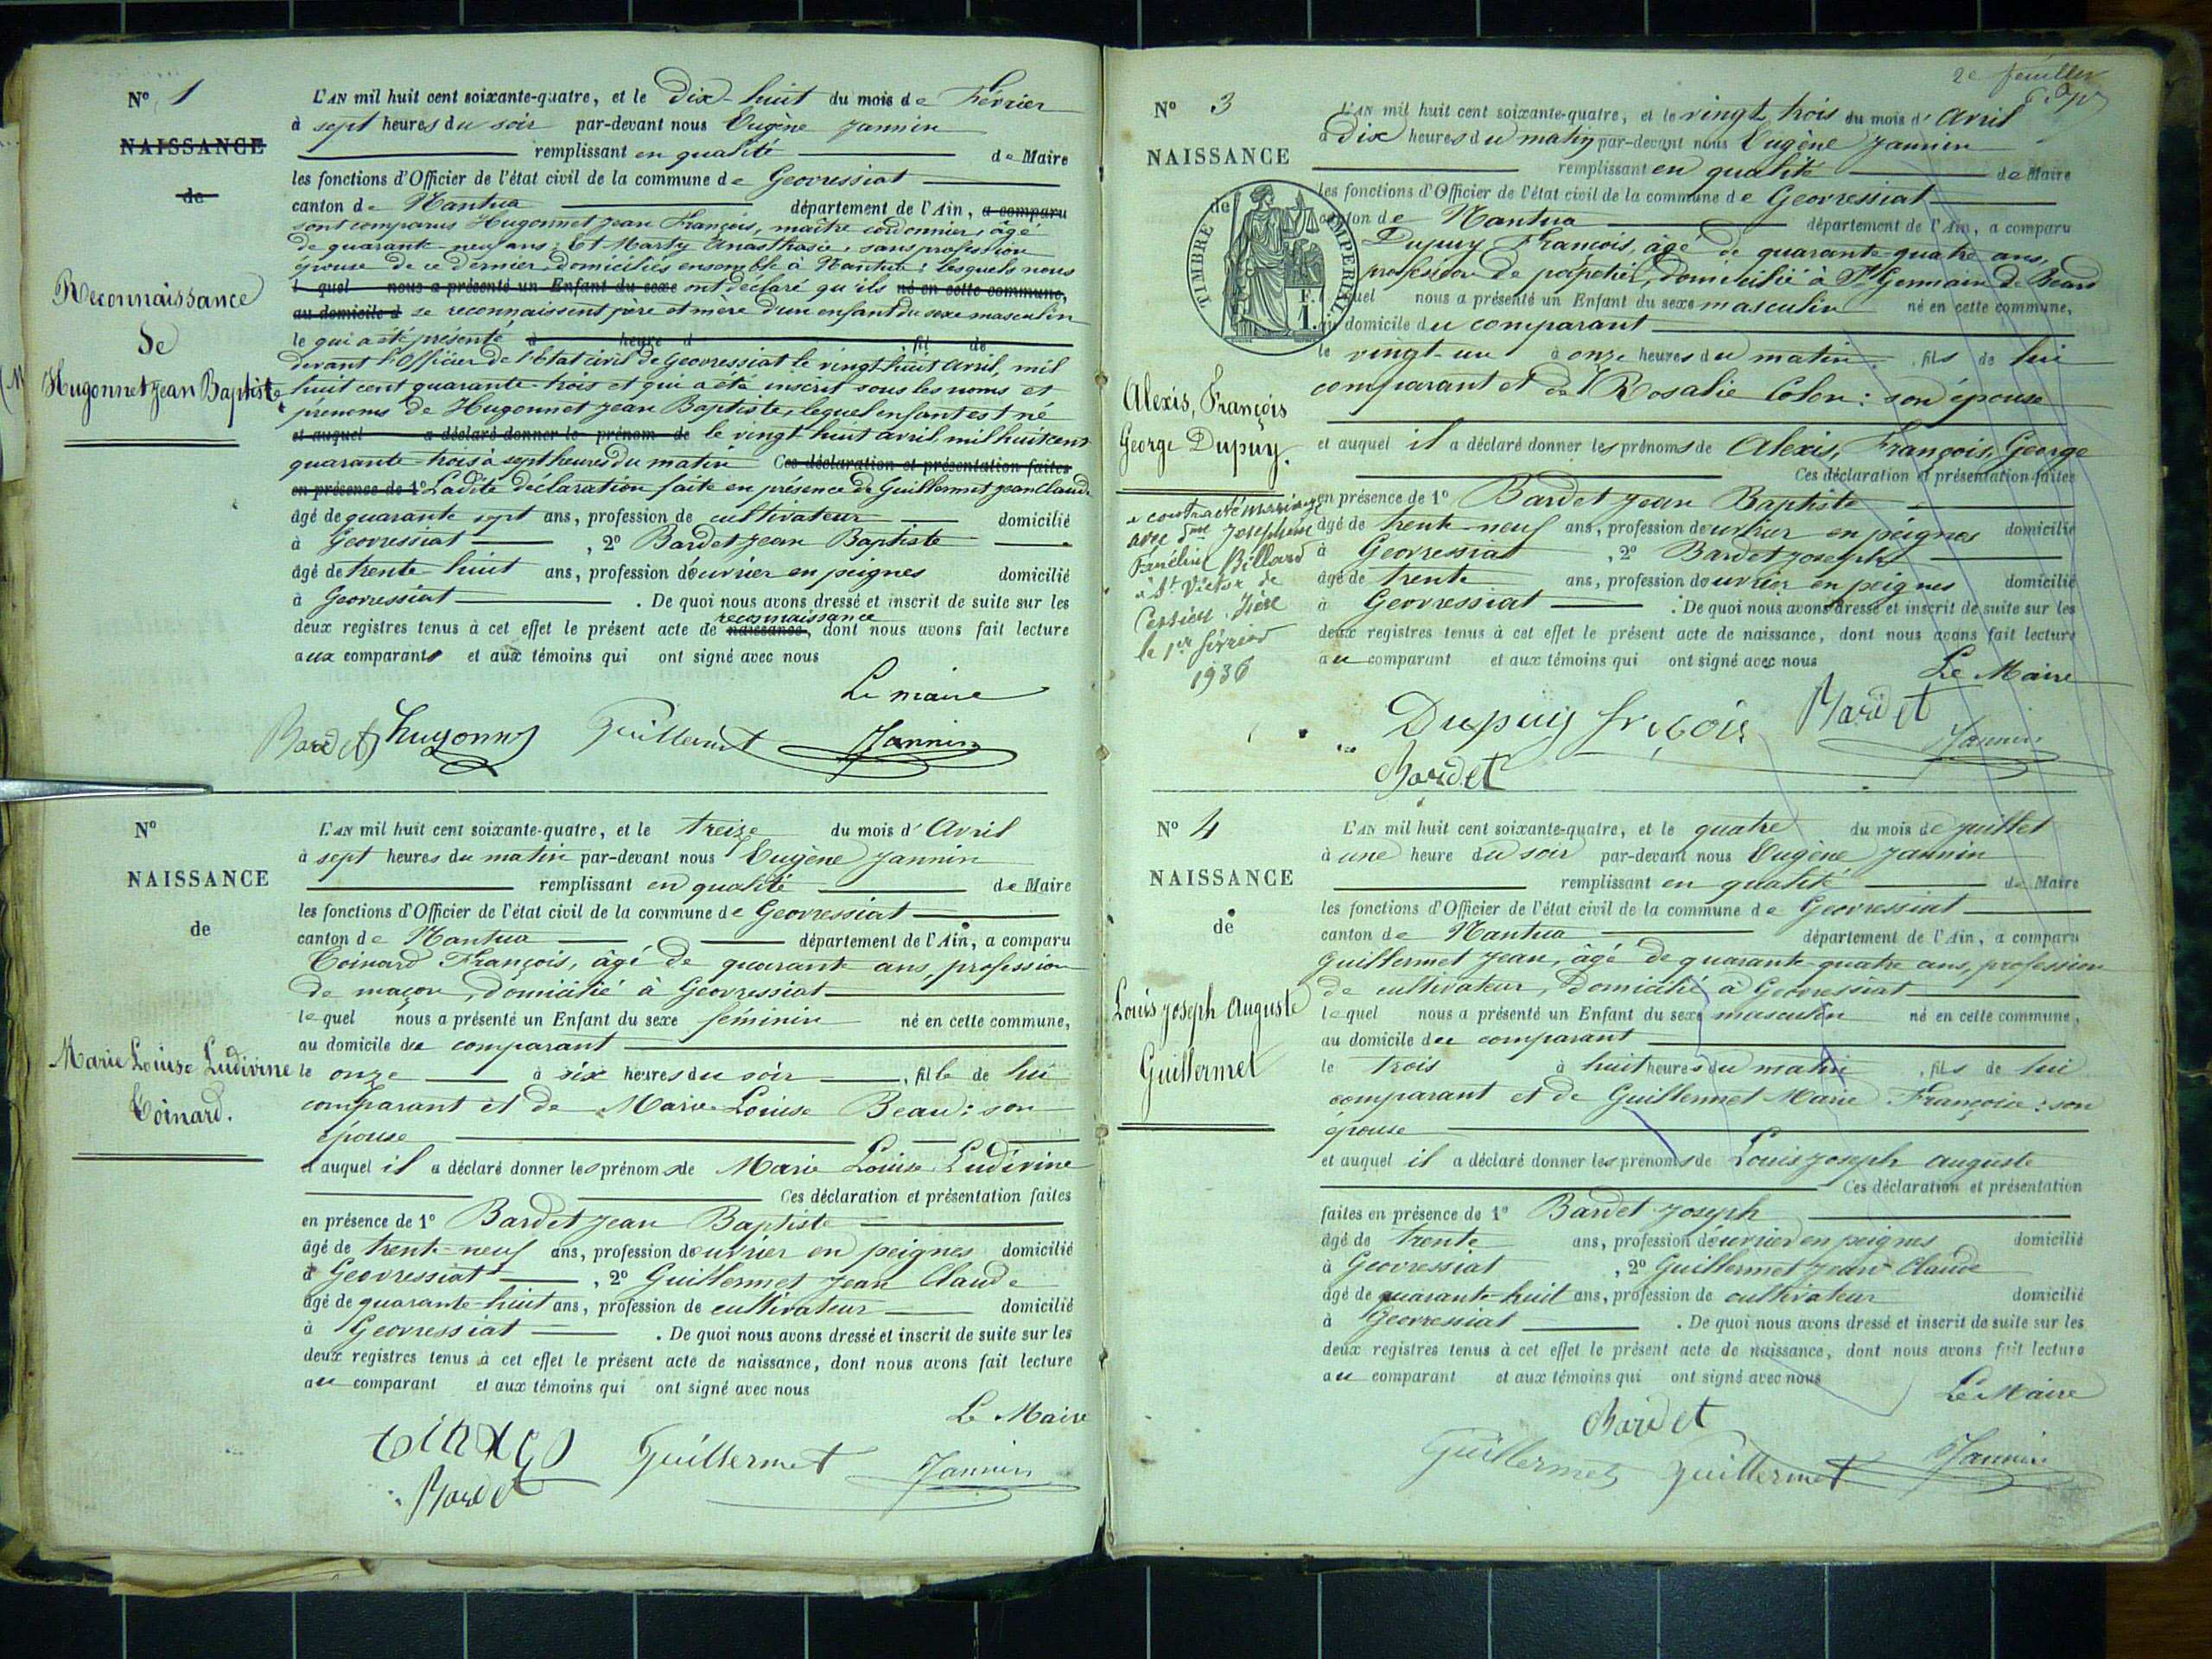 N° 1
NAISSANCE
de
Reconnaissance
de
Hugonnet Jean Baptiste
L'AN mil huit cent soixante-quatre, et le Dix-huit du mois de Février
à sept heures du soir par-devant nous Eugène Jannin
remplissant en qualité de Maire
les fonctions d'Officier de l'état civil de la commune de Geovressiat
canton de Nantua département de l'Ain, a comparu
sont comparus Hugonnet Jean François, maître cordonnier, âgé
de quarante-neuf ans; Et Marty Anasthasie, sans profession
épouse de ce dernier domiciliés ensemble à Nantua; lesquels nous
l quel nous a présenté un Enfant du sexe ont déclaré qu'ils né en cette commune,
au domicile d se reconnaissent père et mère d'un enfant du sexe masculin
le qui a été présenté à heure d fil de
devant l'Officier de l'état civil de Geovressiat le vingt huit avril, mil
huit cent quarante-trois et qui a été inscrit sous les noms et
prenoms de Hugonnet Jean Baptiste, lequel enfant est né
et auquel a déclaré donner le prénom de le vingt huit avril mil huit cent
quarante-trois à sept heures du matin Ces déclaration et présentation faites
en présence de 1° Ladite déclaration faite en présence de Guillermet Jean Claude
âgé de quarante sept ans, profession de cultivateur domicilié
à Geovressiat , 2° Bardet Jean Baptiste
âgé de trente huit ans, profession d'ouvrier en peignes domicilié
à Geovressiat . De quoi nous avons dressé et inscrit de suite sur les
reconnaissance
deux registres tenus à cet effet le présent acte de naissance, dont nous avons fait lecture
aux comparants et aux témoins qui ont signé avec nous
Le maire
Bardet hugonnet Guillermet Jannin
N°
NAISSANCE
de
Marie Louise Ludivine
Coinard.
L'AN mil huit cent soixante-quatre, et le treize du mois d'Avril
à sept heures du matin par-devant nous Eugène Jannin
remplissant en qualité de Maire
les fonctions d'Officier de l'état civil de la commune de Geovressiat
canton de Nantua département de l'Ain, a comparu
Coinard François, âgé de quarante ans, profession
de maçon, domicilié à Geovressiat
lequel nous a présenté un Enfant du sexe féminin né en cette commune,
au domicile du comparant
le onze à six heures du soir , fille de lui
comparant et de Marie Louise Beau: son
épouse
et auquel il a déclaré donner les prénoms de Marie Louise Ludivine
Ces déclaration et présentation faites
en présence de 1° Bardet Jean Baptiste
âgé de trente-neuf ans, profession d'ouvrier en peignes domicilié
à Geovressiat , 2° Guillermet Jean Claude
âgé de quarante-huit ans, profession de cultivateur domicilié
à Geovressiat . De quoi nous avons dressé et inscrit de suite sur les
deux registres tenus à cet effet le présent acte de naissance, dont nous avons fait lecture
au comparant et aux témoins qui ont signé avec nous
Le Maire
Guillermet Jannin
Bardet
2e feuillet
N° 3
NAISSANCE
de
TIMBRE IMPÉRIAL
F.
1.
Alexis, François
George Dupuy.
a contracté mariage
avec dme Josephine
Billard
à St Victor de
Cessieu. Isère
le 1er février
1936
L'AN mil huit cent soixante-quatre, et le vingt trois du mois d'Avril
à Dix heures du matin par-devant nous Eugène Jannin
remplissant en qualité de Maire
les fonctions d'Officier de l'état civil de la commune de Geovressiat
canton de Nantua département de l'Ain, a comparu
Dupuy François, âgé de quarante-quatre ans,
profession de papetier, domicilié à St Germain de Beard
lequel nous a présenté un Enfant du sexe masculin né en cette commune,
au domicile du comparant
le vingt-un à onze heures du matin, fils de lui
comparant et de Rosalie Colon: son épouse
et auquel il a déclaré donner les prénoms de Alexis, François, George
Ces déclaration et présentation faites
en présence de 1° Bardet Jean Baptiste
âgé de trente-neuf ans, profession d'ouvrier en peignes domicilié
à Geovressiat , 2° Bardet Joseph
âgé de trente ans, profession d'ouvrier en peignes domicilié
à Geovressiat . De quoi nous avons dressé et inscrit de suite sur les
deux registres tenus à cet effet le présent acte de naissance, dont nous avons fait lecture
au comparant et aux témoins qui ont signé avec nous
Le Maire
Dupuy Bardet
Jannin
Bardet
N° 4
NAISSANCE
de
Louis Joseph Auguste
Guillermet
L'AN mil huit cent soixante-quatre, et le quatre du mois de juillet
à une heure du soir par-devant nous Eugène Jannin
remplissant en qualité de Maire
les fonctions d'Officier de l'état civil de la commune de Geovressiat
canton de Nantua département de l'Ain, a comparu
Guillermet Jean, âgé de quarante-quatre ans, profession
de cultivateur, domicilié à Geovressiat
lequel nous a présenté un Enfant du sexe masculin né en cette commune,
au domicile du comparant
le trois à huit heures du matin , fils de lui
comparant et de Guillermet Marie Françoise: son
épouse
et auquel il a déclaré donner les prénoms de Louis Joseph Auguste
Ces déclaration et présentation
faites en présence de 1° Bardet Joseph
âgé de trente ans, profession d'ouvrier en peignes domicilié
à Geovressiat , 2° Guillermet Jean Claude
âgé de quarante-huit ans, profession de cultivateur domicilié
à Geovressiat . De quoi nous avons dressé et inscrit de suite sur les
deux registres tenus à cet effet le présent acte de naissance, dont nous avons fait lecture
au comparant et aux témoins qui ont signé avec nous
Le Maire
Bardet
Guillermet Guillermet Jannin